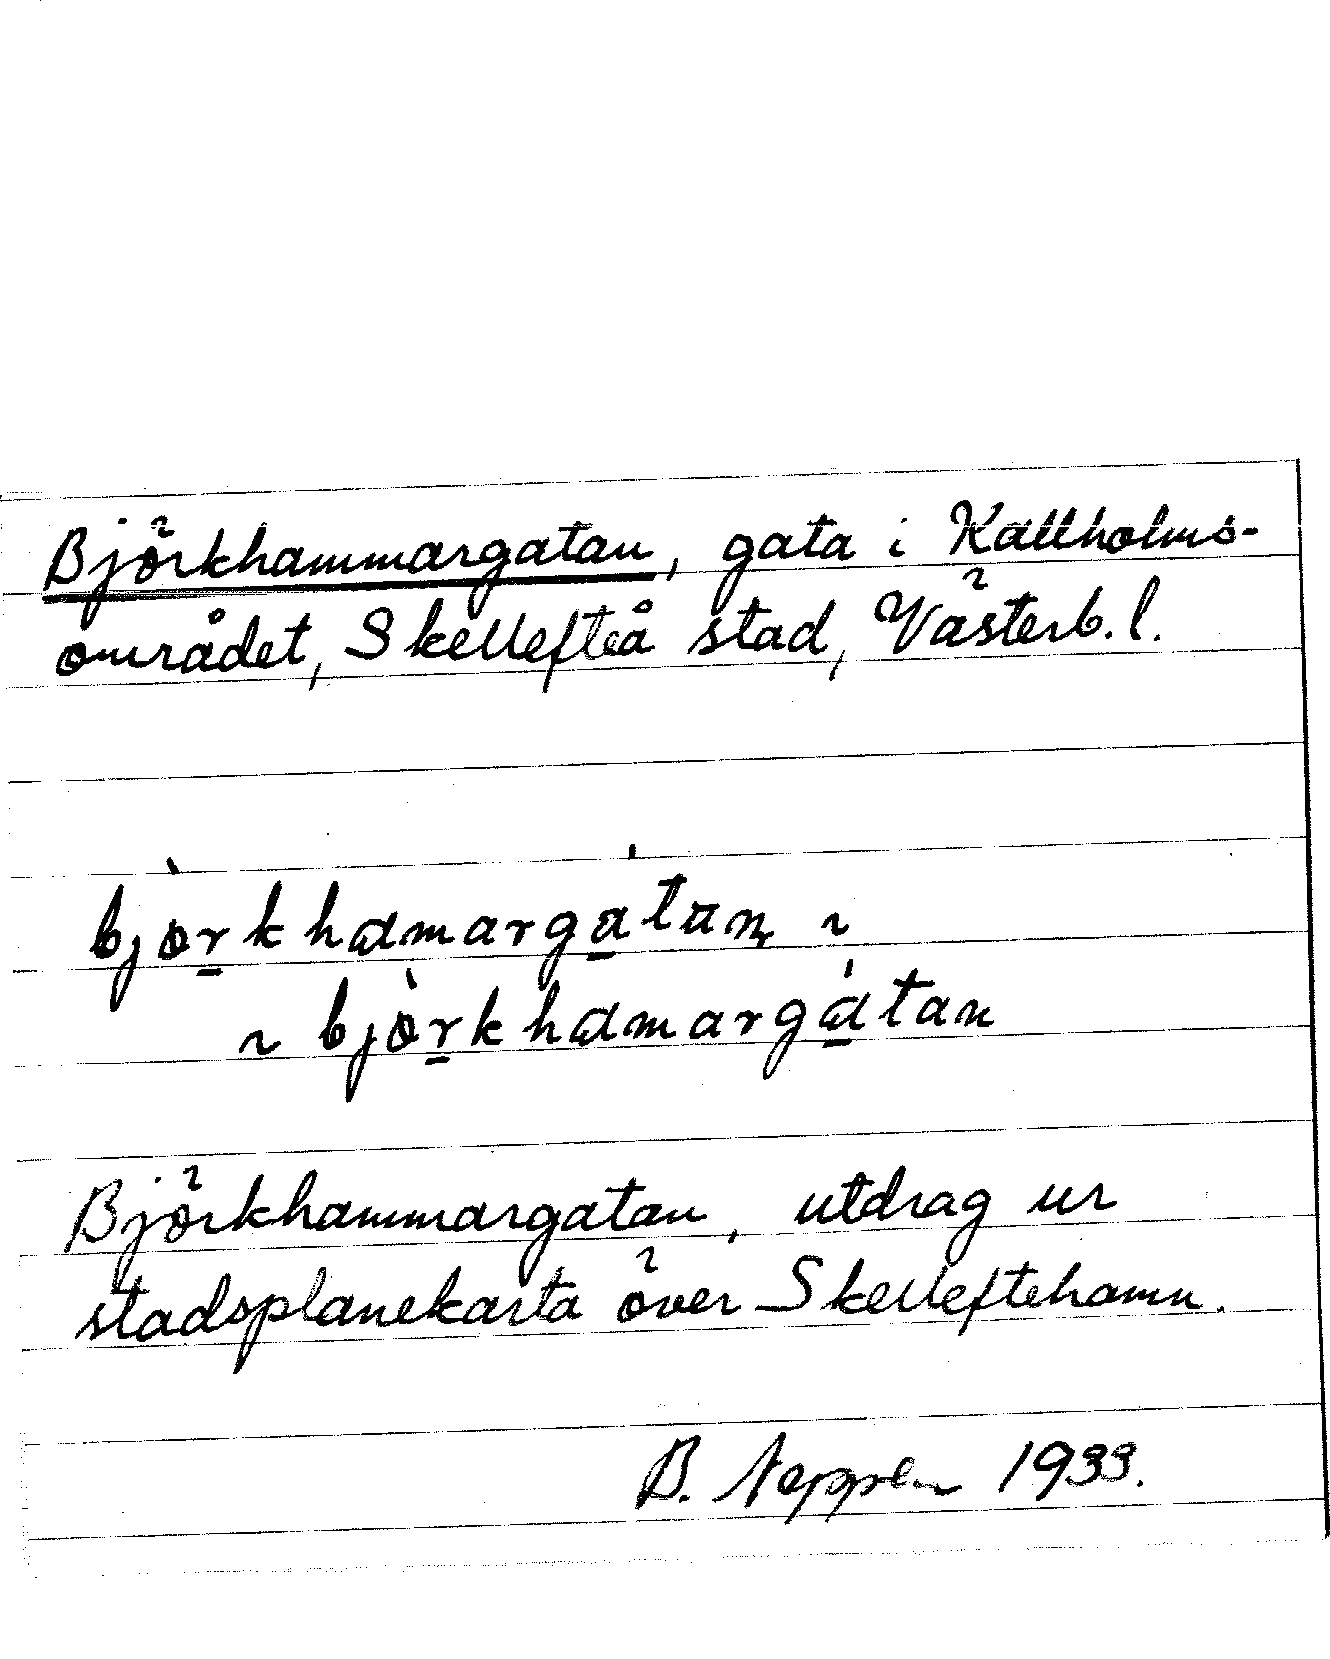 Björkhammargatan, gata i Kallholms-
området, Skellefteå stad, Västerb. l.
bjòrkhɑmargátan ~
~ bjòrkhɑmargɑ́tan
Björkhammargatan, utdrag ur
stadsplanekarta över Skelleftehamn.
B. 1933.